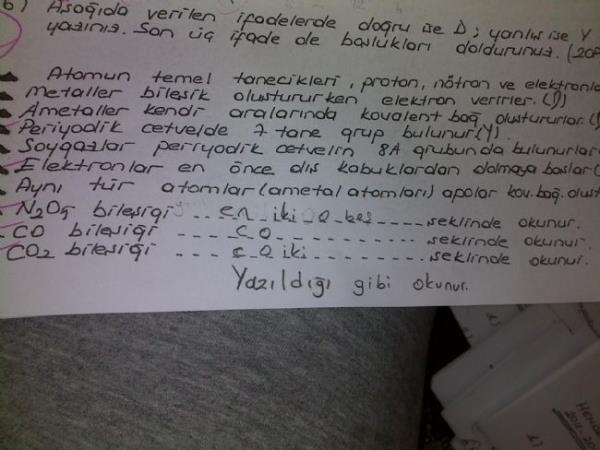 b) Aşağıda verilen ifadelerde doğru ise D; yanlış ise Y
yazınız. Son üç ifade de boşlukları doldurunuz. (20P
Atomun temel tanecikleri, proton, nötron ve elektronla
Metaller bileşik oluştururken elektron verirler. (D)
Ametaller kendi aralarında kovalent bağ oluştururlar. (
Periyodik cetvelde 7 tane grup bulunur (Y).
Soygazlar perryodik cetvelin 8A grubunda bulunurlar
Elektronlar en önce dış kabuklardan dolmaya başlar (
Aynı tür atomlar (ametal atomları) apolar kov. bağ. oluşt
N2O5 bileşiği .. en iki o beş ..... şeklinde okunur.
CO bileşiği .... c o ........ şeklinde okunur.
CO2 bileşiği .... c o iki ....... şeklinde okunur.
Yazıldığı gibi okunur.